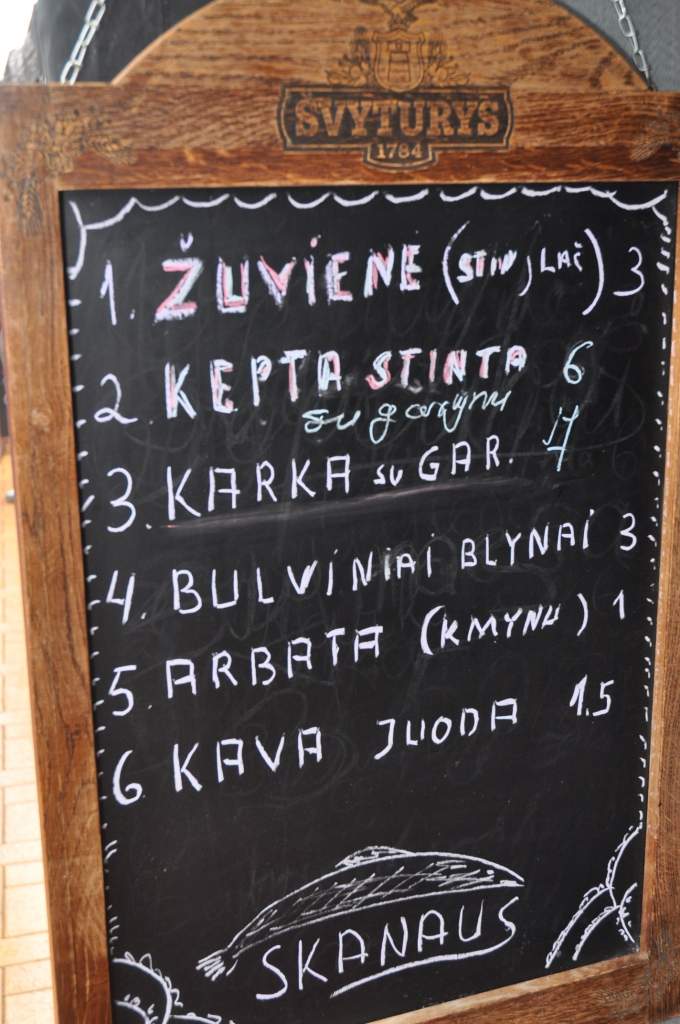 ŠVYTURYS
1784
1. ŽUVIENE (STIN, LAŠ) 3
2 KEPTA STINTA 6
su garnynu
3. KARKA su GAR.
4. BULVINIAI BLYNAI 3
5. ARBATA (KMYNŲ) 1
6 KAVA JUODA 1.5
SKANAUS